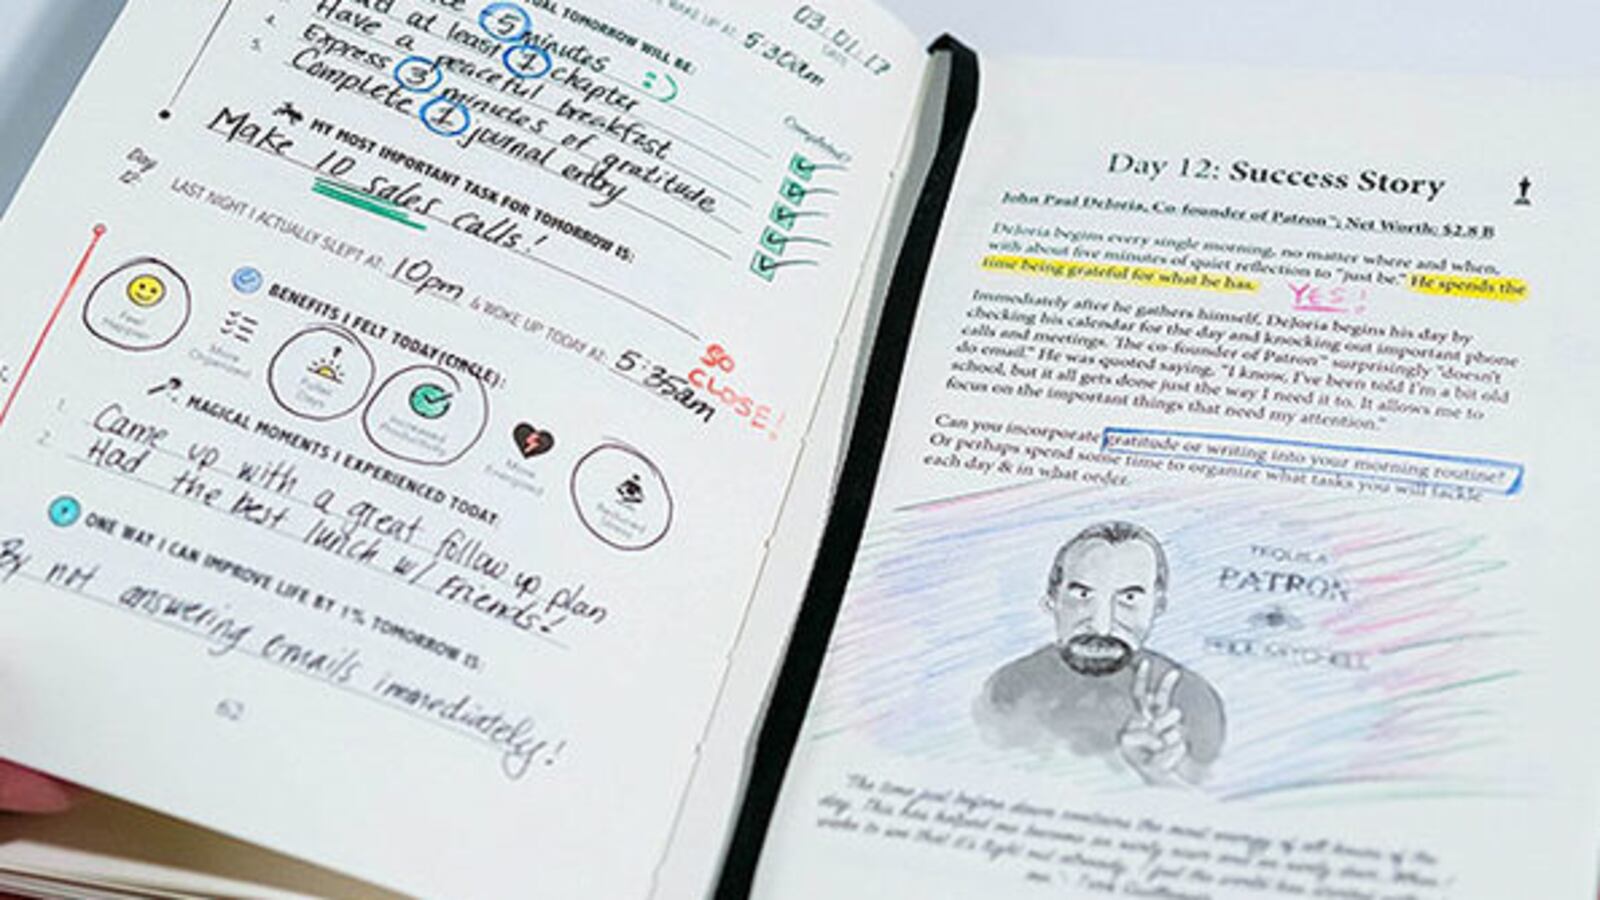 TOMORROW WILL BE:
WAKE UP AT: 5:30am
03.01.17
5 minutes :)
at least 1 chapter
Completed?
4. Have a peaceful breakfast
5. Express 3 minutes of gratitude
Complete 1 journal entry
MY MOST IMPORTANT TASK FOR TOMORROW IS:
Make 10 sales calls!
Day
12
LAST NIGHT I ACTUALLY SLEPT AT: 10pm & WOKE UP TODAY AT: 5:35am
SO
CLOSE!
BENEFITS I FELT TODAY (CIRCLE):
Feel
Happier
More
Organized
Fuller
Days
Increased
Productivity
More
Energized
MAGICAL MOMENTS I EXPERIENCED TODAY:
1. Came up with a great follow up plan
2. Had the best lunch w/ Friends!
ONE WAY I CAN IMPROVE LIFE BY 1% TOMORROW IS:
By not answering emails immediately!
62
Day 12: Success Story
John Paul DeJoria, Co-founder of Patron™; Net Worth: $2.8 B
DeJoria begins every single morning, no matter where and when,
with about five minutes of quiet reflection to "just be." He spends the
time being grateful for what he has.
YES!
Immediately after he gathers himself, DeJoria begins his day by
checking his calendar for the day and knocking out important phone
calls and meetings. The co-founder of Patron™ surprisingly "doesn't
do email." He was quoted saying, "I know, I've been told I'm a bit old
school, but it all gets done just the way I need it to. It allows me to
focus on the important things that need my attention."
Can you incorporate gratitude or writing into your morning routine?
Or perhaps spend some time to organize what tasks you will tackle
each day & in what order.
TEQUILA
PATRON
"The time just before dawn contains the most energy of all hours of the
day. This has helped me become an early riser and an early doer. When I
wake to see that it's light out already, I feel the world has started without
me."